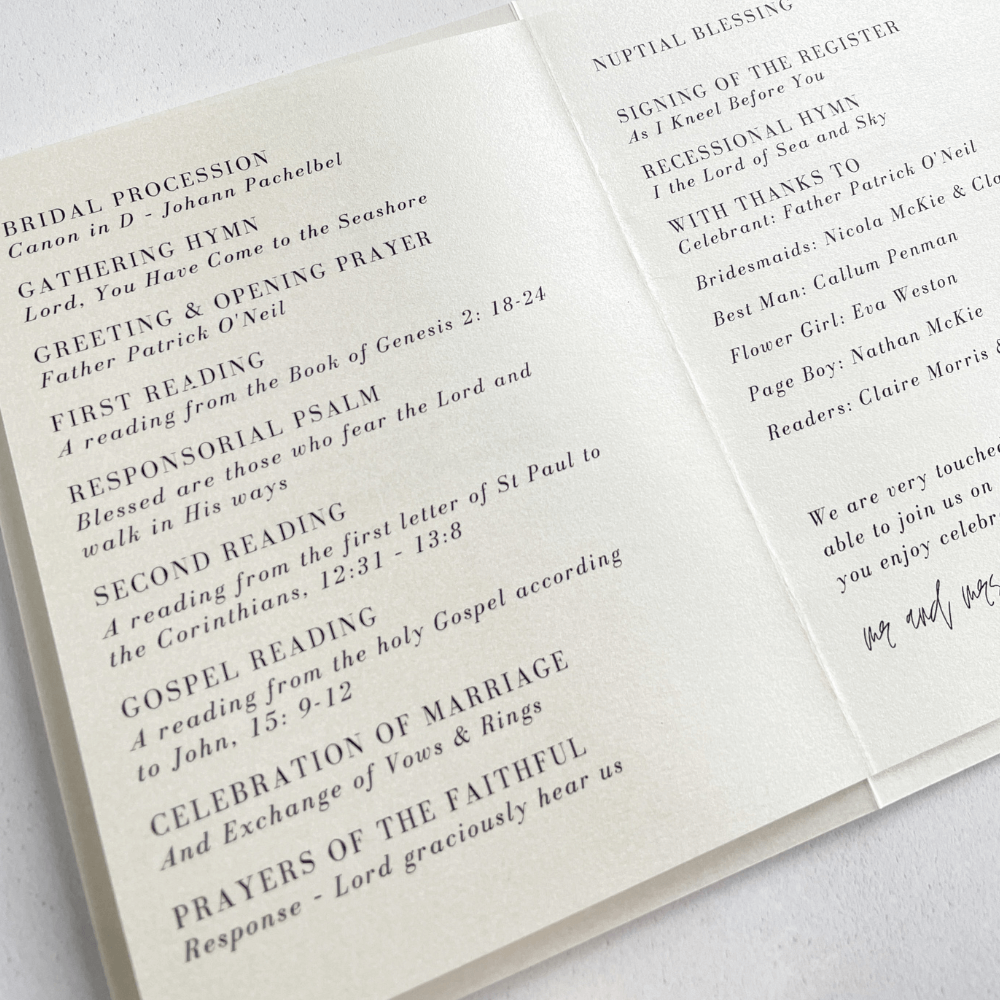 BRIDAL PROCESSION
Canon in D - Johann Pachelbel
GATHERING HYMN
Lord, You Have Come to the Seashore
GREETING & OPENING PRAYER
Father Patrick O'Neil
FIRST READING
A reading from the Book of Genesis 2: 18-24
RESPONSORIAL PSALM
Blessed are those who fear the Lord and
walk in His ways
SECOND READING
A reading from the first letter of St Paul to
the Corinthians, 12:31 - 13:8
GOSPEL READING
A reading from the holy Gospel according
to John, 15: 9-12
CELEBRATION OF MARRIAGE
And Exchange of Vows & Rings
PRAYERS OF THE FAITHFUL
Response - Lord graciously hear us
NUPTIAL BLESSING
SIGNING OF THE REGISTER
As I Kneel Before You
RECESSIONAL HYMN
I the Lord of Sea and Sky
WITH THANKS TO
Celebrant: Father Patrick O'Neil
Bridesmaids: Nicola McKie &
Best Man: Callum Penman
Flower Girl: Eva Weston
Page Boy: Nathan McKie
Readers: Claire Morris &
We are very touched
able to join us on
you enjoy
mr and mrs